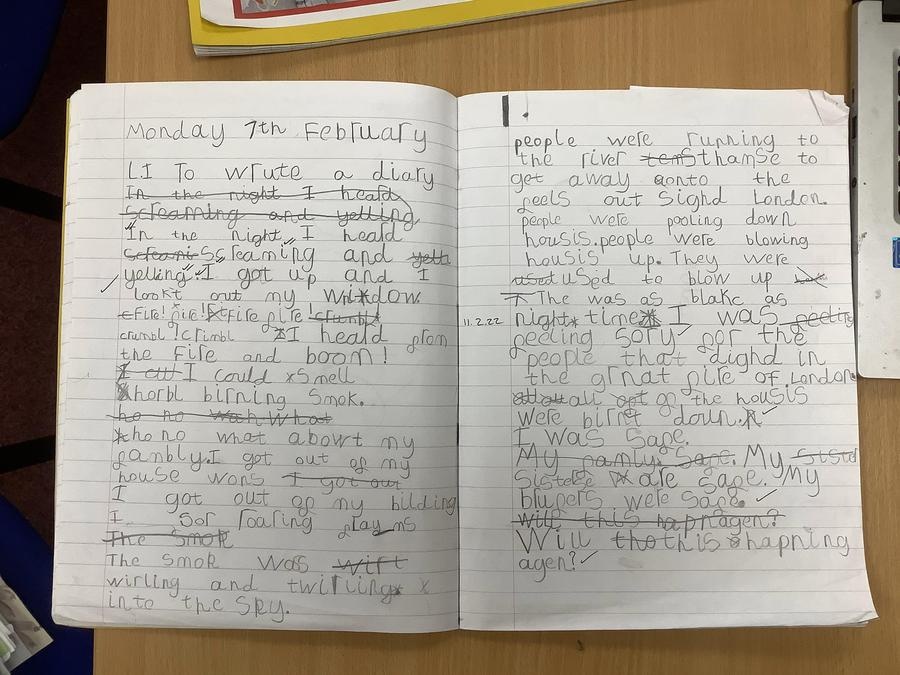 Monday 7th February
LI To wrute a diary
In the night I heard
screaming and yelling
In the night I heald
screami Screaming and yell
yelling. I got up and I
lookt out my window.
Fire! fire! Fire fire! crumbl
crumbl! crimbl I heald from
the fire and boom!
I all I could smell
horbl birning smok.
ho no wah what
ho no what abowt my
fambly. I got out of my
house wons I got out
I got out of my bilding
I sor roaring flay ms
The smok
The smok was wirt
wirling and twirling
into the sky.
people were running to
the river tems thamse to
get away gonto the
feels out Sighd London.
people were pooling down
housis. people were blowing
housis up. They were
used used to blow up
The was as blakc as
11.2.22 night time I was feeling
feeling sory for the
people that dighd in
the grnat fire of London.
all all opt of the housis
were birnt down.
I was safe.
My famly. Safe. My sisted
sisters are safe. My
blupers were safe.
will this hapn agen?
Will tho this hapning
agen?